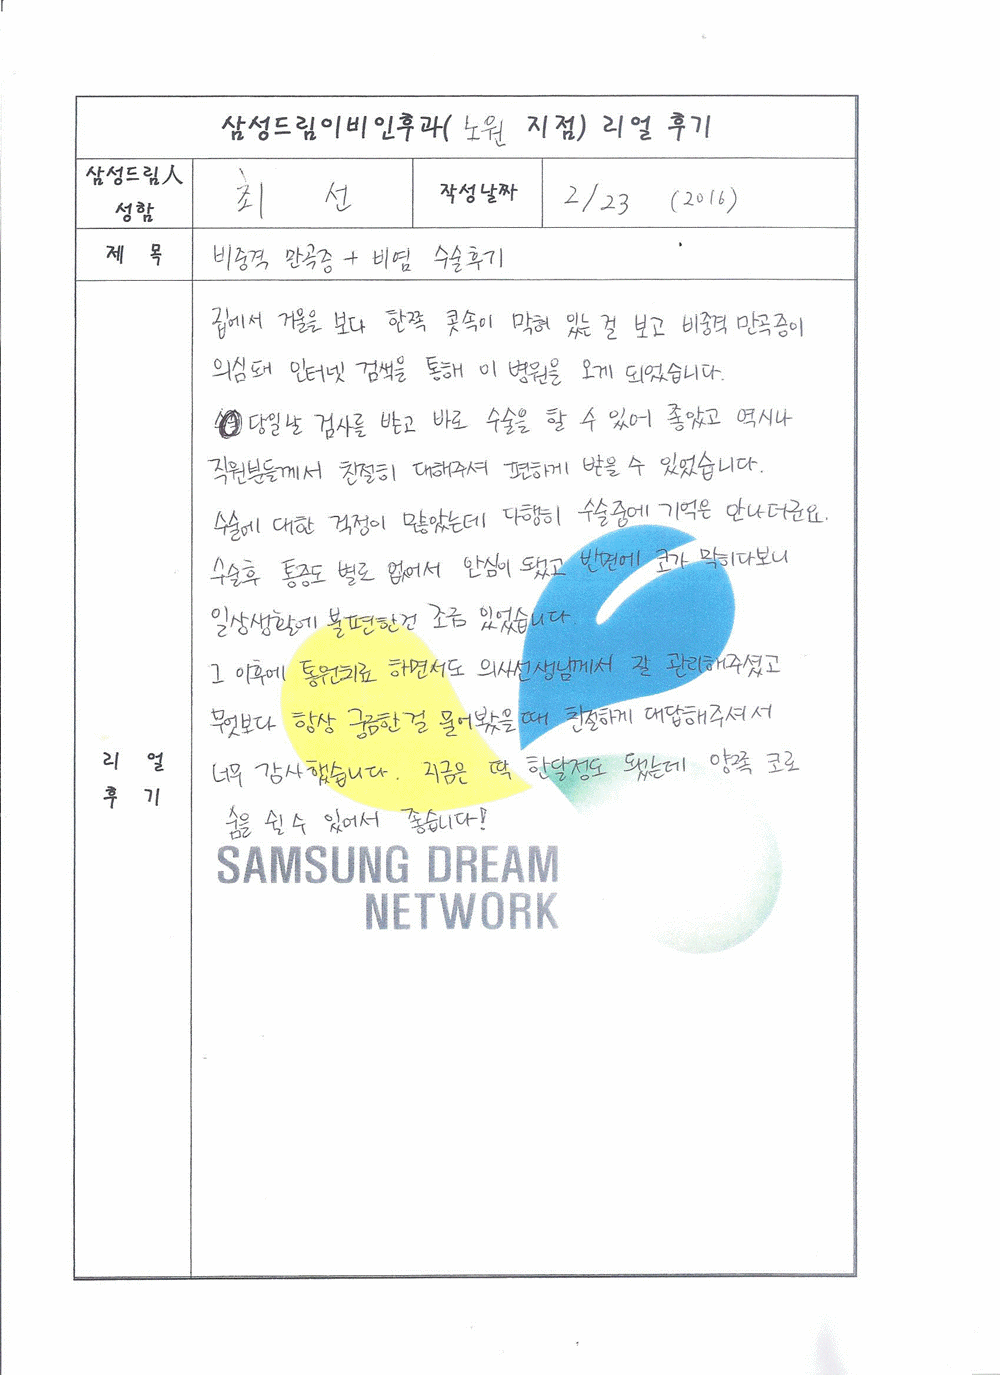 삼성드림이비인후과( 노원 지점) 리얼 후기
삼성드림人 성함
최 선
작성날짜
2/23 (2016)
제 목
비중격 만곡증 + 비염 수술후기
리 얼
후 기
집에서 거울을 보다 한쪽 콧속이 막혀 있는 걸 보고 비중격 만곡증이
의심돼 인터넷 검색을 통해 이 병원을 오게 되었습니다.
당일날 검사를 받고 바로 수술을 할 수 있어 좋았고 역시나
직원분들께서 친절히 대해주셔 편하게 받을 수 있었습니다.
수술에 대한 걱정이 많았는데 다행히 수술중에 기억은 안나더군요.
수술후 통증도 별로 없어서 안심이 됐고 반면에 코가 막히다보니
일상생활에 불편한건 조금 있었습니다.
그 이후에 통원치료 하면서도 의사선생님께서 잘 관리해주셨고
무엇보다 항상 궁금한걸 물어봤을때 친절하게 대답해주셔서
너무 감사했습니다. 지금은 딱 한달정도 됐는데 양쪽 코로
숨을 쉴 수 있어서 좋습니다!
SAMSUNG DREAM
NETWORK